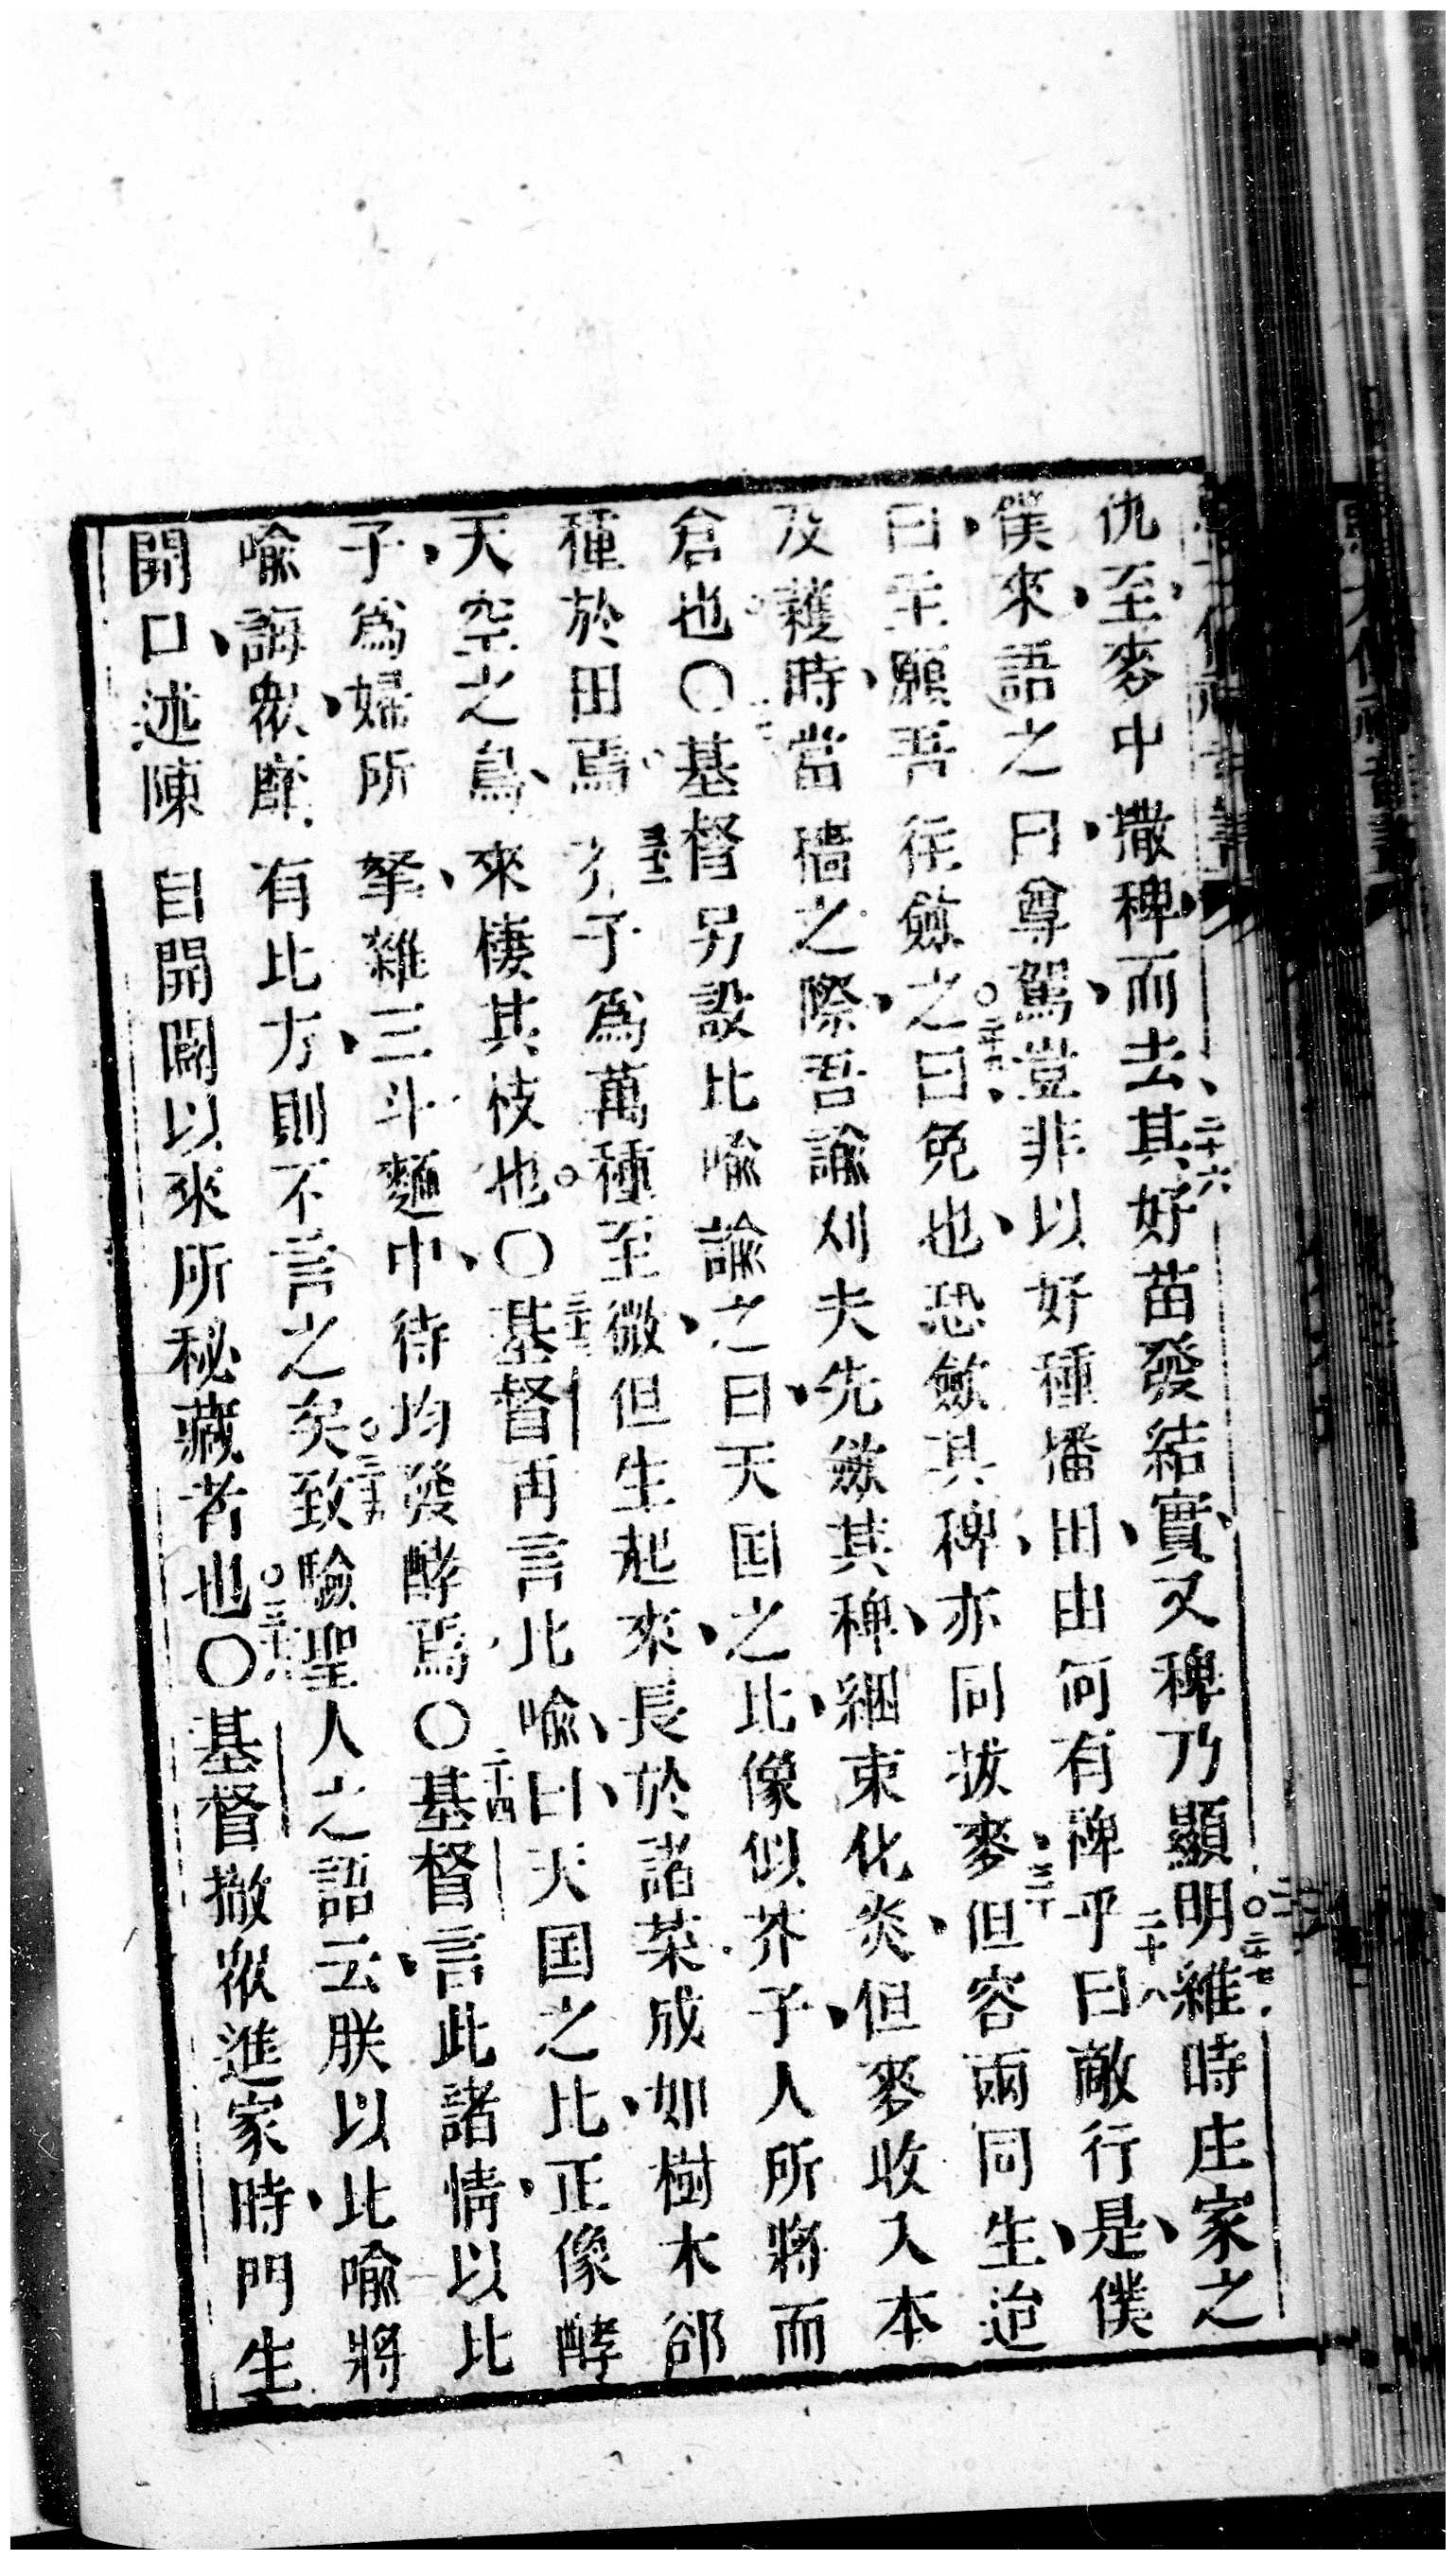 仇至、麥中撒稗、而去、其好苗發結實、又稗乃顯明、維時庄家之
僕來、語之曰、尊駕、豈非以好種播田、由何有稗乎、曰敵行是、僕
曰、主願吾往斂之、曰、免也、恐斂其稗、亦同拔麥、但容兩同生、迨
及穫時、當穡之際、吾諭刈夫先斂其稗、綑束化炎、但麥收入本
倉也。〇基督另設比喻諭之曰、天国之比、像似芥子、人所將而
種於田焉、子爲萬種至微、但生起來、長於諸菜、成如樹木、郤
天空之鳥、來棲其枝也。〇基督再言比喻、曰、天国之比、正像酵
子、爲婦所拏、雜三斗麵中、待均發酵焉。〇基督言此諸情、以比
喻誨衆、靡有比方、則不言之矣。致驗聖人之語云、朕以比喻將
開口、述陳自開闢以來所秘藏者也。〇基督撇衆進家時、門生